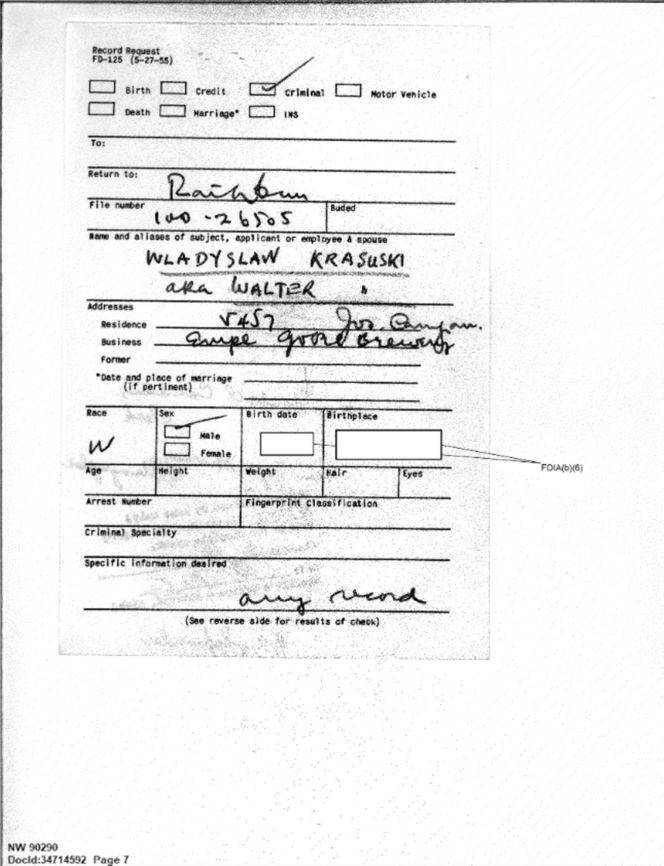 Record Request
FD-125 (5-27-55)
Birth Credit Criminal Motor Vehicle
Death Marriage* INS
To:
Return to:
Rathbun
File number 100-26505 Buded
Name and aliases of subject, applicant or employee & spouse
WLADYSLAW KRASUSKI
aka WALTER "
Addresses
Residence 5457 Jos. Campau.
Business Goebel Brewery
Former
*Date and place of marriage
(if pertinent)
Race Sex Birth date Birthplace
W Male
Female
FOIA(b)(6)
Age Height Weight Hair Eyes
Arrest Number Fingerprint Classification
Criminal Specialty
Specific information desired
any record
(See reverse side for results of check)
NW 90290
DocId:34714592 Page 7